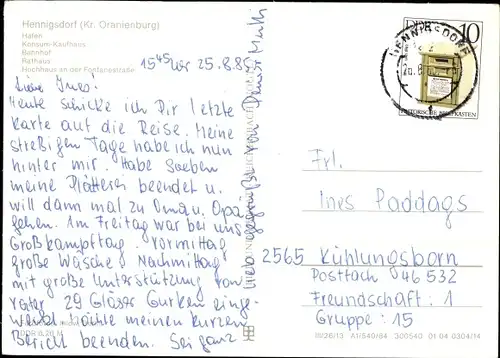 Hennigsdorf (Kr. Oranienburg)
Hafen
Konsum-Kaufhaus
Bahnhof
Rathaus
Hochhaus an der Fontanestraße
15⁴⁵ Uhr 25.8.85
Liebe Ines!
Heute schicke ich Dir letzte
Karte auf die Reise. Meine
streßigen Tage habe ich nun
hinter mir. Habe soeben
meine Plätterei beendet u.
will dann mal zu Oma u. Opa
gehen. Am Freitag war bei uns
Großkampftag. Vormittag
große Wäsche, Nachmittag
mit großer Unterstützung von
Vater 29 Gläser Gurken einge-
weckt. Möchte meinen kurzen
Bericht beenden. Sei ganz
lieb gegrüßt von Deiner Mutti
DDR
10
HISTORISCHE BRIEFKÄSTEN
HENNIGSDORF
1
Frl.
Ines Paddags
2565 Kühlungsborn
Postfach 46 532
Freundschaft: 1
Gruppe: 15
III/26/13 A1/549/84 300540 01 04 0304/14